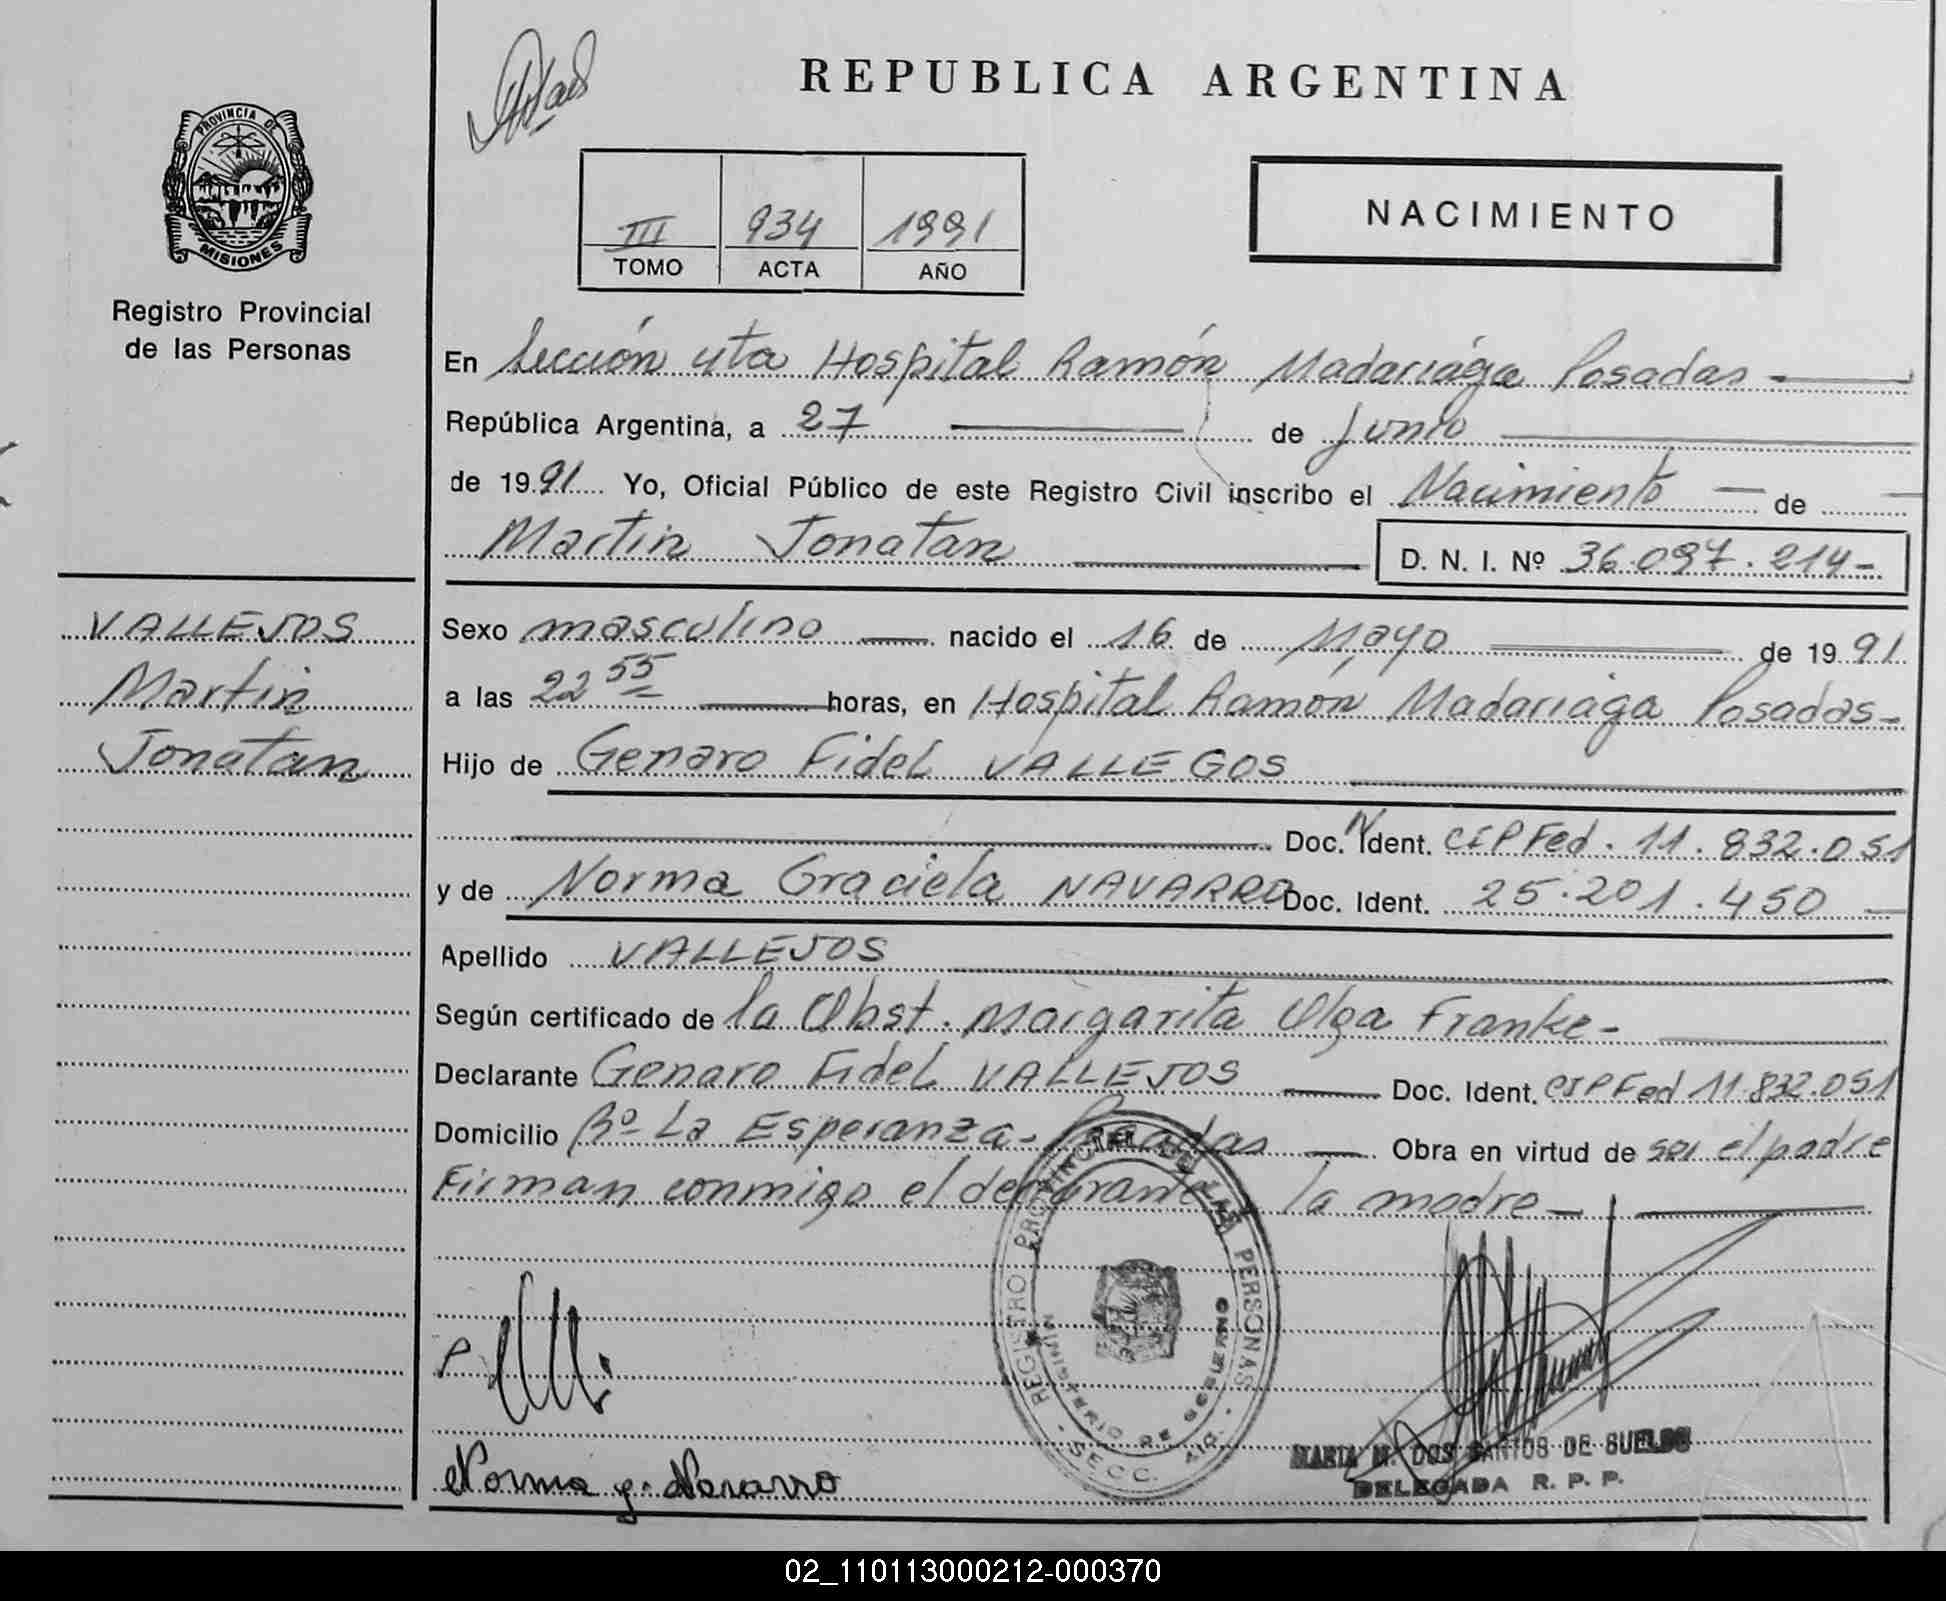 REPUBLICA ARGENTINA
PROVINCIA DE
MISIONES
Registro Provincial
de las Personas
III 934 1991
TOMO ACTA AÑO
NACIMIENTO
En Sección 4ta Hospital Ramón Madariága Posadas -
República Argentina, a 27 de Junio
de 1991 Yo, Oficial Público de este Registro Civil inscribo el Nacimiento de
Martin Jonatan
D. N. I. Nº 36.097.214-
VALLEJOS
Martin
Jonatan
Sexo masculino nacido el 16 de Mayo de 1991
a las 22 55 horas, en Hospital Ramón Madariága Posadas-
Hijo de Genaro Fidel VALLEGOS
Doc. Ident. CIPFed. 11.832.051
y de Norma Graciela NAVARRO Doc. Ident. 25.201.450
Apellido VALLEJOS
Según certificado de la Obst. Margarita Olga Franke-
Declarante Genaro Fidel VALLEJOS Doc. Ident. CIPFed 11.832.051
Domicilio Bº La Esperanza- Posadas Obra en virtud de ser el padre
Firman conmigo el declarante la madre-
REGISTRO PROVINCIAL DE LAS PERSONAS
MINISTERIO DE GOBIERNO
- SECC.
Norma g. Navarro
MARIA M. DOS SANTOS DE SUELDO
DELEGADA R. P. P.
02_110113000212-000370